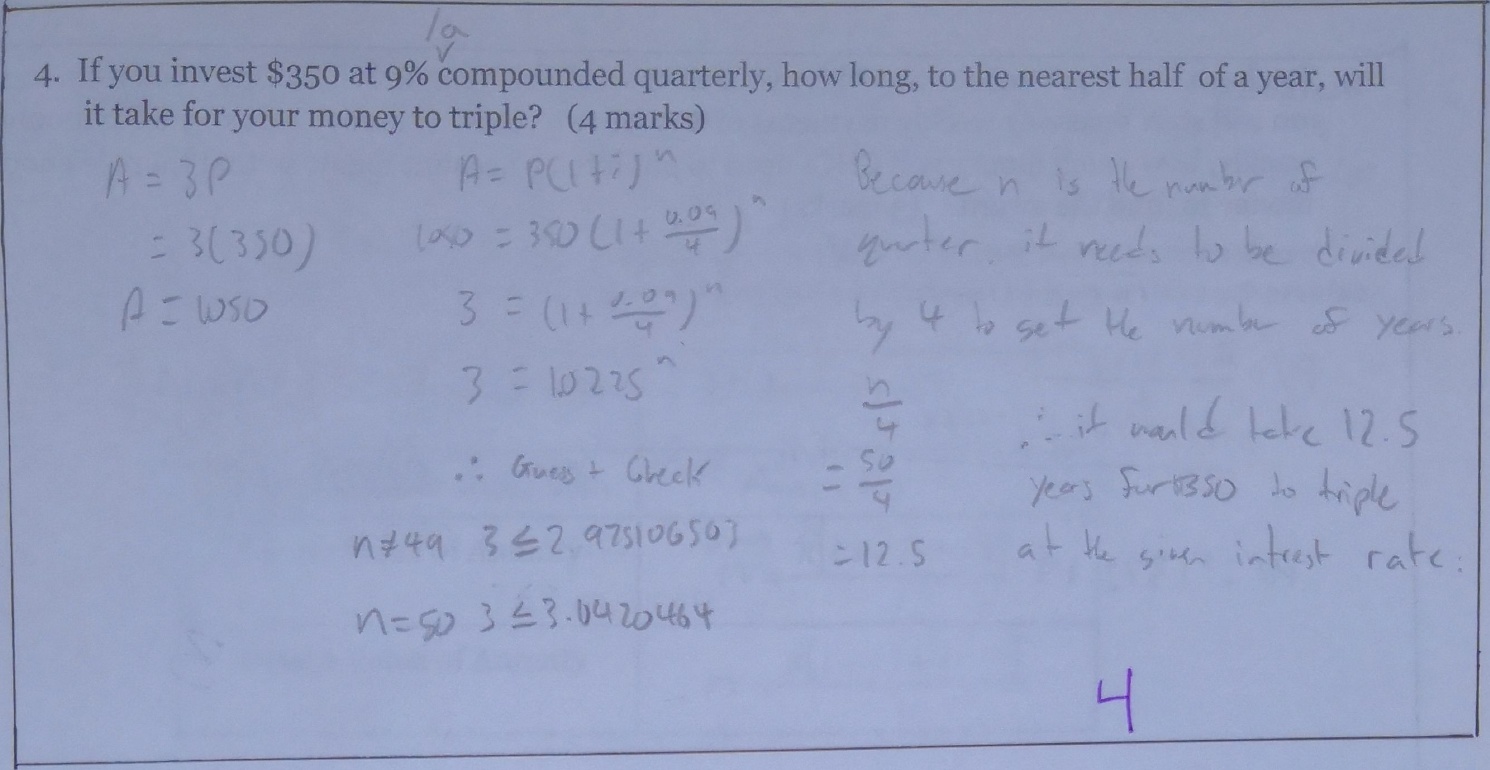 /a
4. If you invest $350 at 9% compounded quarterly, how long, to the nearest half of a year, will
it take for your money to triple? (4 marks)
A = 3P
= 3(350)
A = 1050
A = P(1+i)^n
1050 = 350(1+ 0.09/4)^n
3 = (1+ 0.09/4)^n
3 = 1.0225^n
∴ Guess + Check
n≠49 3 ≤ 2.975106503
n=50 3 ≤ 3.0420464
Because n is the numbr of
quarter, it needs to be divided
by 4 to get the number of years.
n/4
= 50/4
= 12.5
∴ it would take 12.5
years for $350 to triple
at the given intrest rate.
4